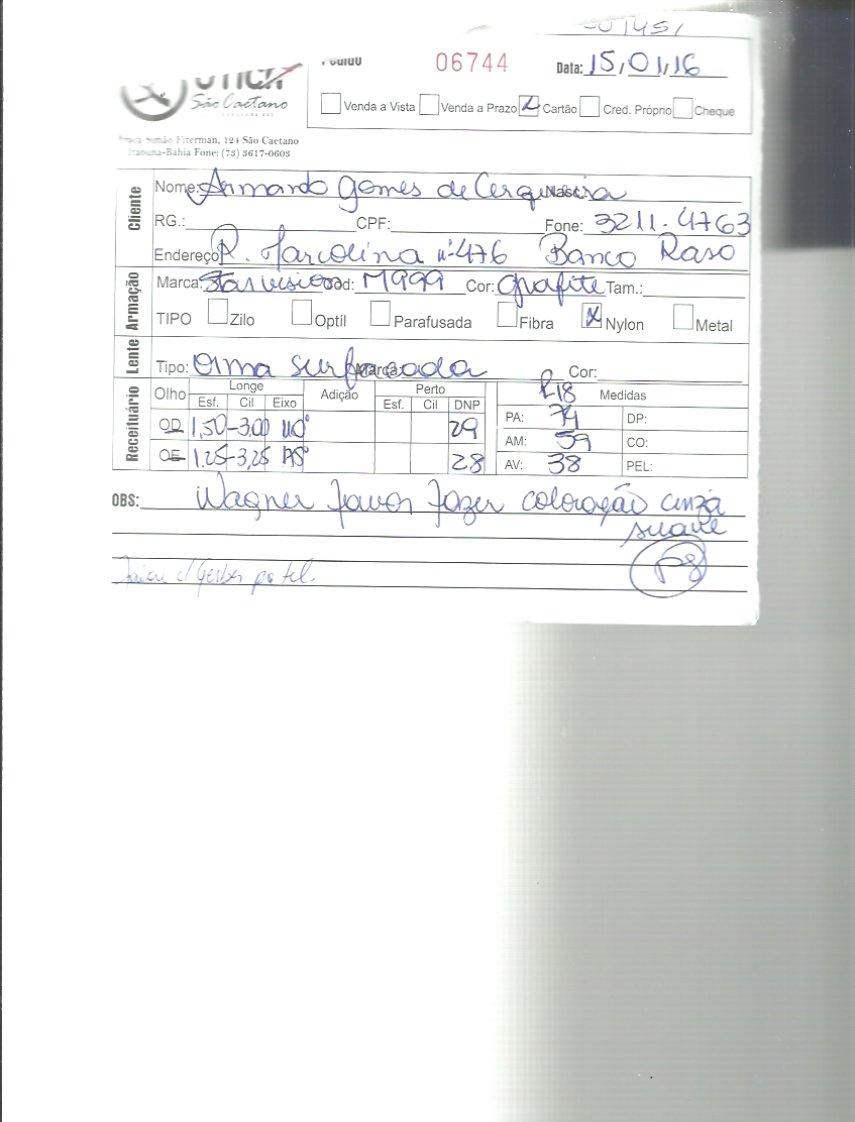 06744 Data: 15/01/16
São Caetano
Venda a Vista Venda a Prazo X Cartão Cred. Próprio Cheque
Simão Fiterman, 124 São Caetano
Itabuna-Bahia Fone: (73) 3617-0603
Cliente
Nome: Armando Gomes de Cerqueira
RG.: CPF: Fone: 3211-4763
Endereço R. Marcolina nº 476 Banco Raso
Armação
Marca: Starvision Cod: M999 Cor: Grafite Tam.:
TIPO Zilo Optil Parafusada Fibra X Nylon Metal
Lente
Tipo: Orma surfaçada Marca: Cor:
Receituário
Olho Longe Adição Perto R18 Medidas
Esf. Cil Eixo Esf. Cil DNP
OD 1,50 -3,00 110° 29 PA: 74 DP:
AM: 59 CO:
OE 1,25 -3,25 28 AV: 38 PEL:
OBS: Wagner favor fazer coloração cinza
suave
por tel.